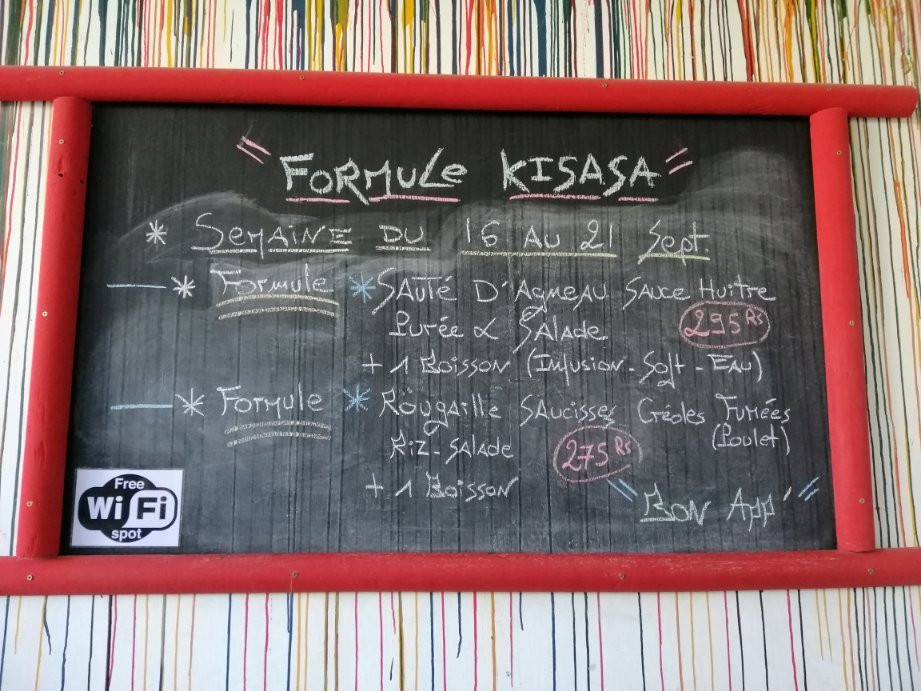 " FORMULE KISASA "
* SEMAINE DU 16 AU 21 Sept.
— * Formule * SAUTÉ D'AGNEAU SAUCE HUITRE
PURÉE & SALADE 295 Rs
+ 1 BOISSON (INFUSION - SOFT - EAU)
— * FORMULE * ROUGAILLE SAUCISSES CRÉOLES FUMÉES
RIZ - SALADE 275 Rs (POULET)
+ 1 BOISSON
" BON APP' "
Free
Wi Fi
spot